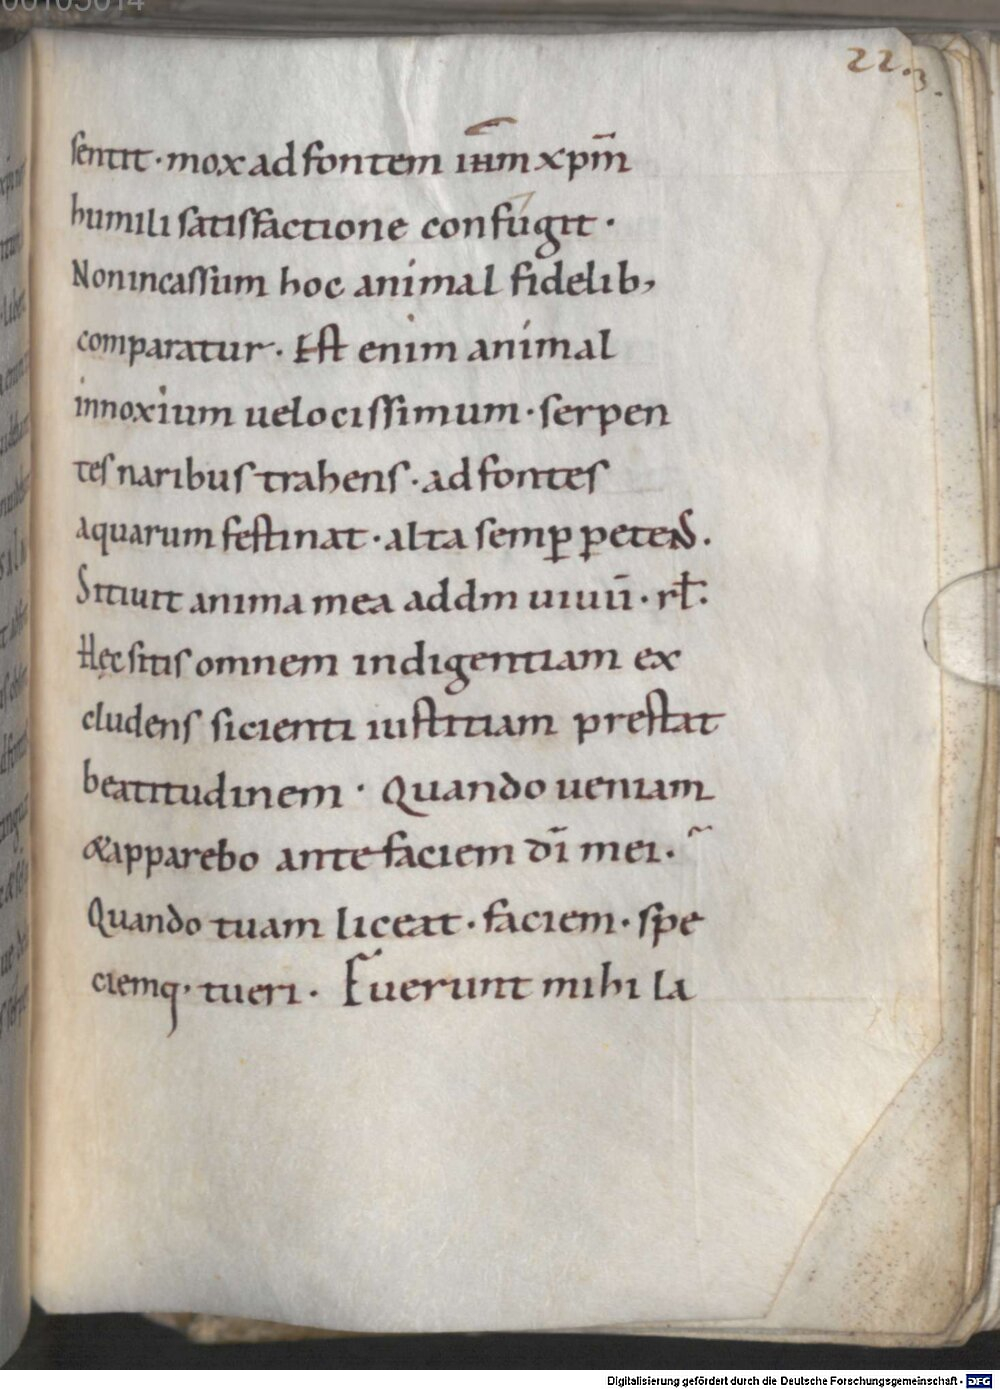 22.3.
sentit · mox ad fontem iu̅m xp̅m
humili satisfactione confúgit ·
Non incassum hoc animal fidelib,
comparatur · Est enim animal
innoxium uelocissimum · serpen
tes naribus trahens · ad fontes
aquarum festinat · alta semꝑ petens .
Sitiuit anima mea ad dm uiuu̅ · rł:
Hęc sitis omnem indigentiam ex
cludens sicienti iustitiam prestat
beatitudinem · Quando ueniam
& apparebo ante faciem di̅ mei .
Quando tuam liceat · faciem · spe
ciemq· tueri · Fuerunt mihi la
Digitalisierung gefördert durch die Deutsche Forschungsgemeinschaft - DFG